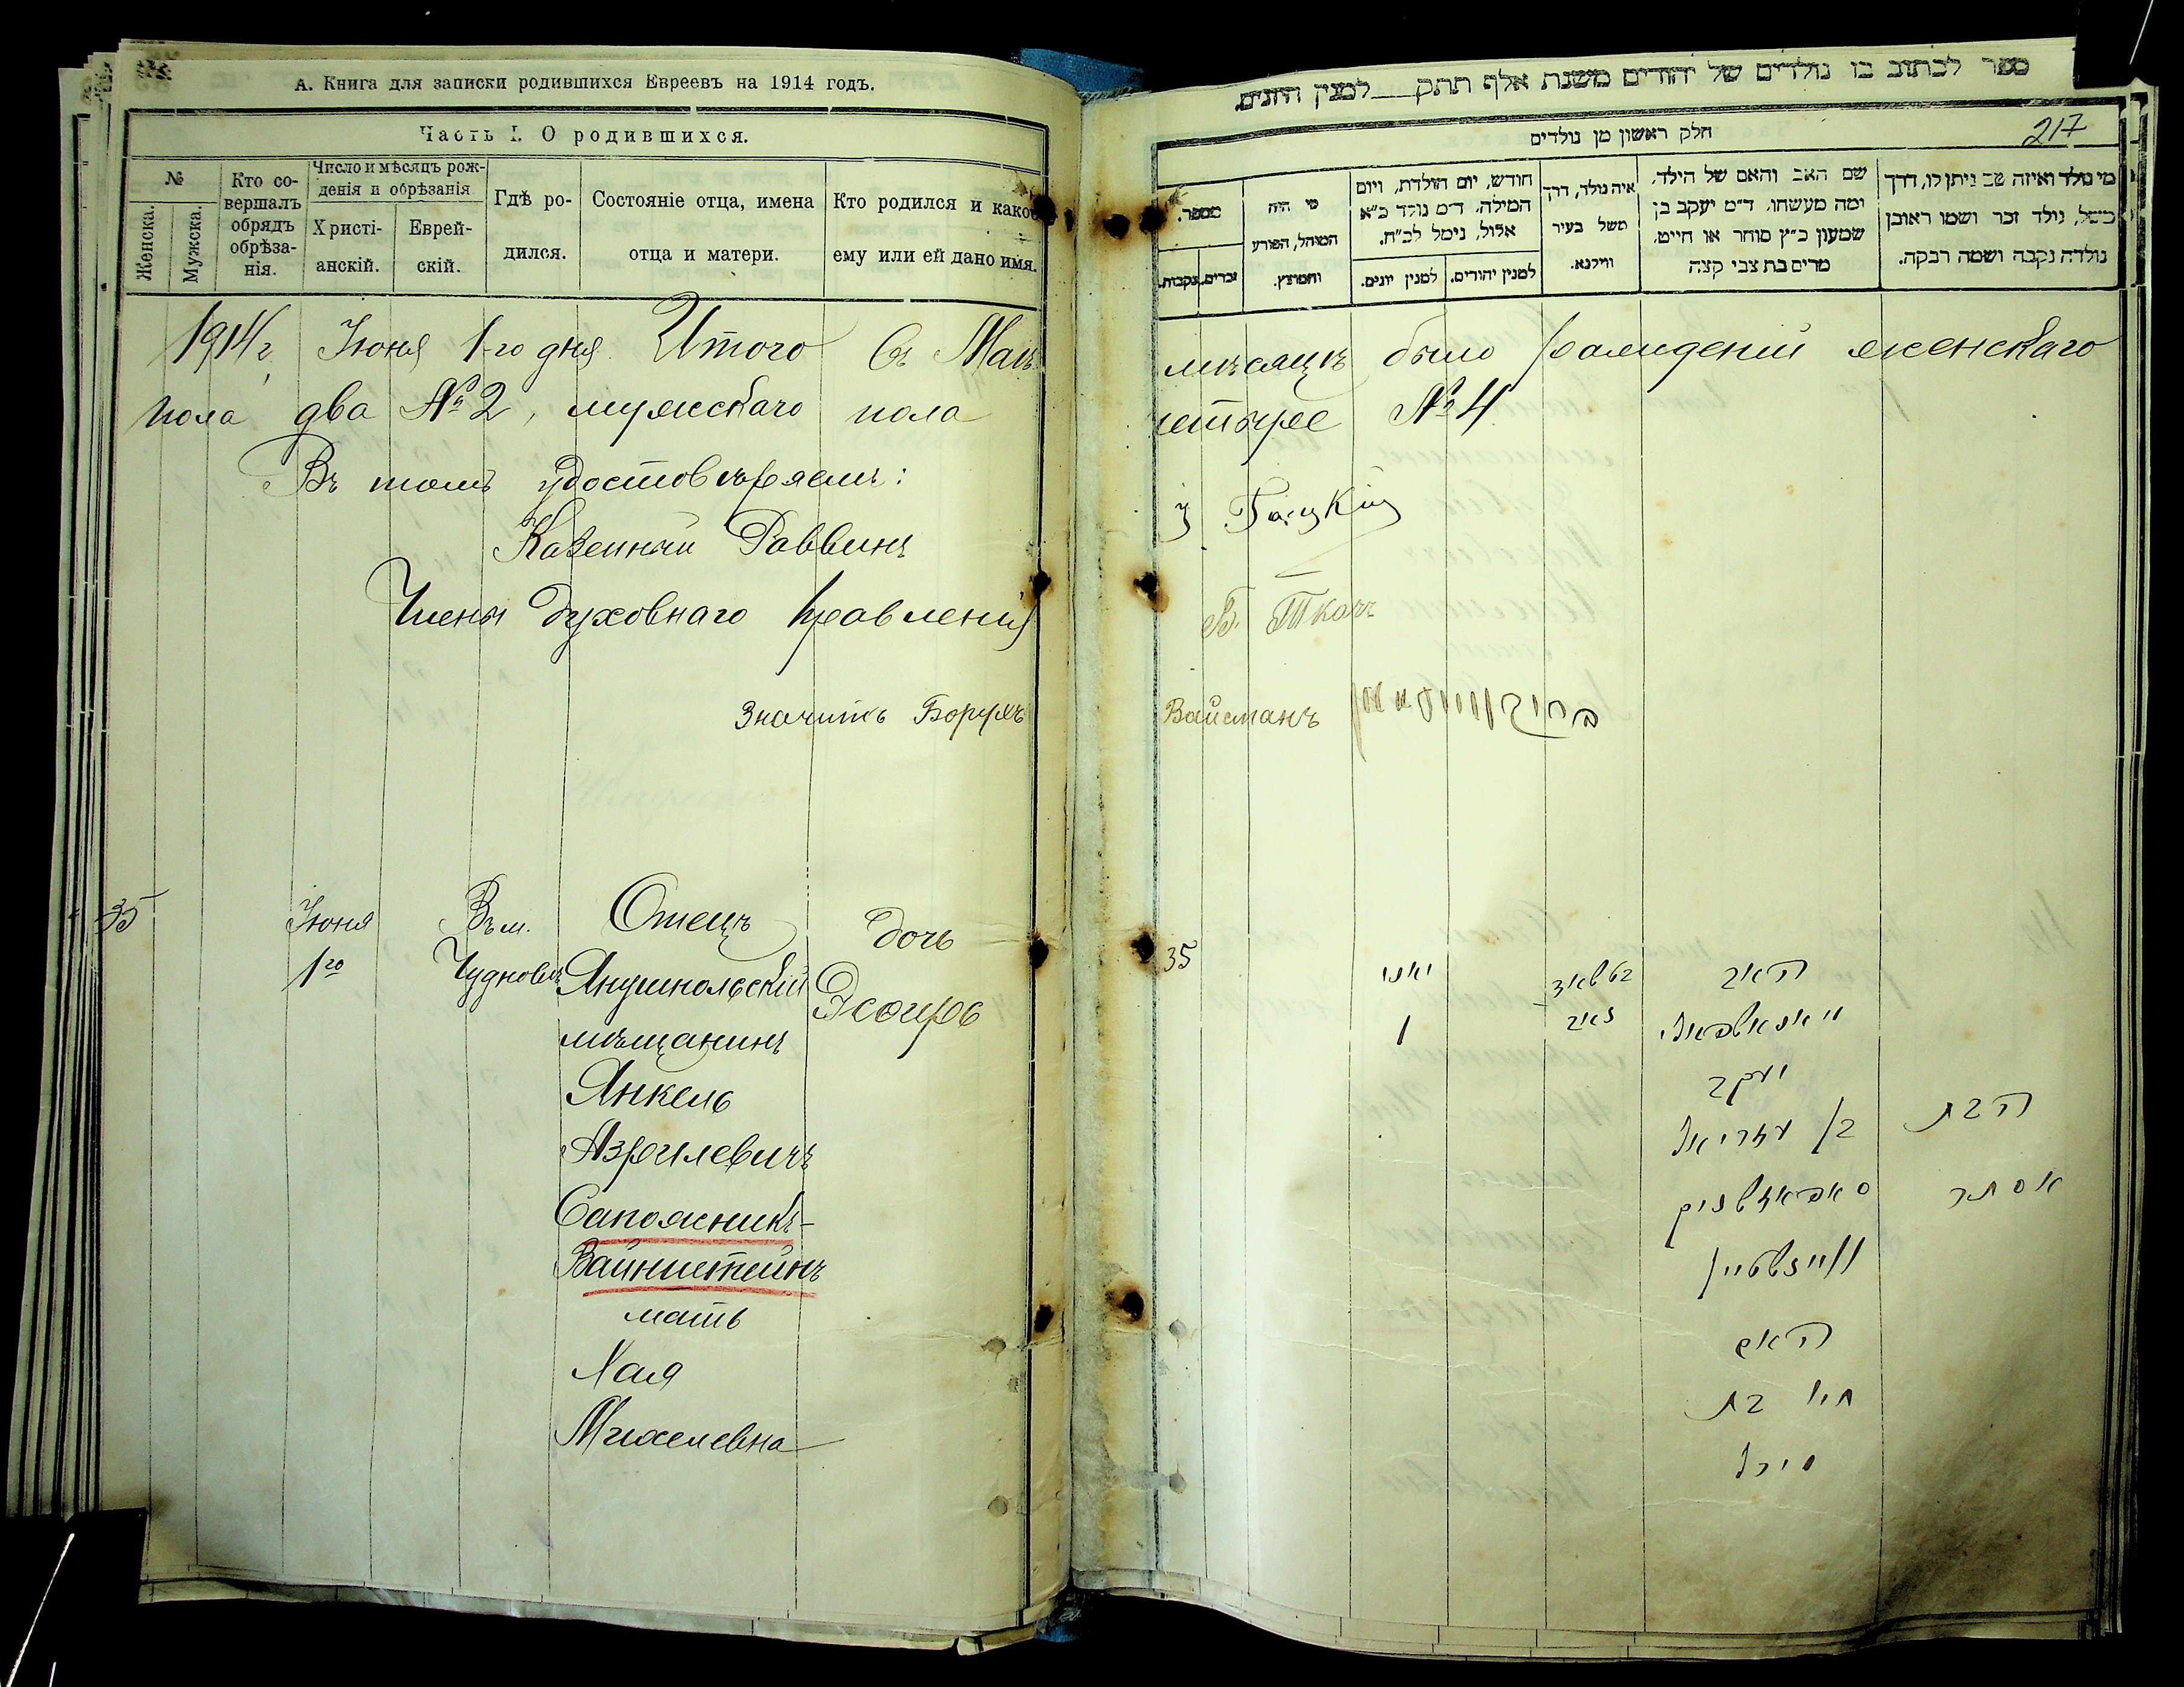 А. Книга для записки родившихся Евреевъ на 1914 годъ.
Часть I. О родившихся.
№
Женска.
Мужска.
Кто со-
вершалъ
обрядъ
обрѣза-
нія.
Число и мѣсяцъ рож-
денія и обрѣзанія
Христі-
анскій.
Еврей-
скій.
Гдѣ ро-
дился.
Состояніе отца, имена
отца и матери.
Кто родился и какое
ему или ей дано имя.
1914 г. Іюня 1-го дня Итого въ Маѣ
пола два № 2, мужскаго пола
Въ томъ удостовѣряемъ:
Казенный Раввинъ
Члены Духовнаго Правленія
Значитъ Борухъ
35
Іюня
1го
Въ м.
Чудновѣ
Отецъ
Янушпольскій
мѣщанинъ
Янкель
Азрилевичъ
Сапожникъ-
Вайнштейнъ
мать
Хая
Михелевна
дочь
Эсѳирь
ספר לכתוב בו נולדים של יהודים משנת אלף תתק__למנין היונים
217
חלק ראשון מן נולדים
מי נולד ואיזה שם ניתן לו, דרך
משל, נולד זכר ושמו ראובן
נולדה נקבה ושמה רבקה.
שם האב והאם של הילד,
ומה מעשהו. ד״מ יעקב בן
שמעון כ״ץ סוחר או חייט,
מרים בת צבי קצה
איה נולד, דרך
משל בעיר
ווילנא.
חודש, יום הולדת, ויום
המילה. ד״מ נולד כ״א
אלול, נימל לכ״ח.
למנין יהודים.
למנין יונים.
מי היה
המוהל, הפורע
והמוצץ.
מספר.
זכרים.
נקבות.
мѣсяцѣ было рожденій женскаго
четыре № 4
Б. Ткачъ
Вайсманъ ברוך ווייסמאן
35
יאני
1
האב
יעקב
בן עזריאל
סאפאזשניק
וויינשטיין
האם
חי' בת
מיכל
הבת
אסתר